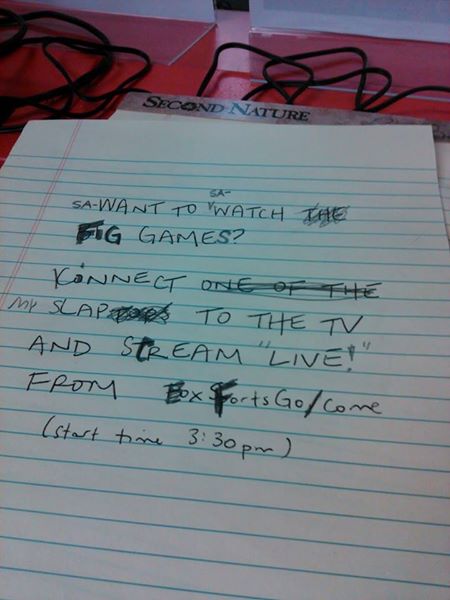 SECOND NATURE
SA-
SA-WANT TO WATCH THE
FIG GAMES?
KONNECT ONE OF THE
MY SLAP TO THE TV
AND STREAM "LIVE!"
FROM FoxSportsGo/come
(start time 3:30pm)